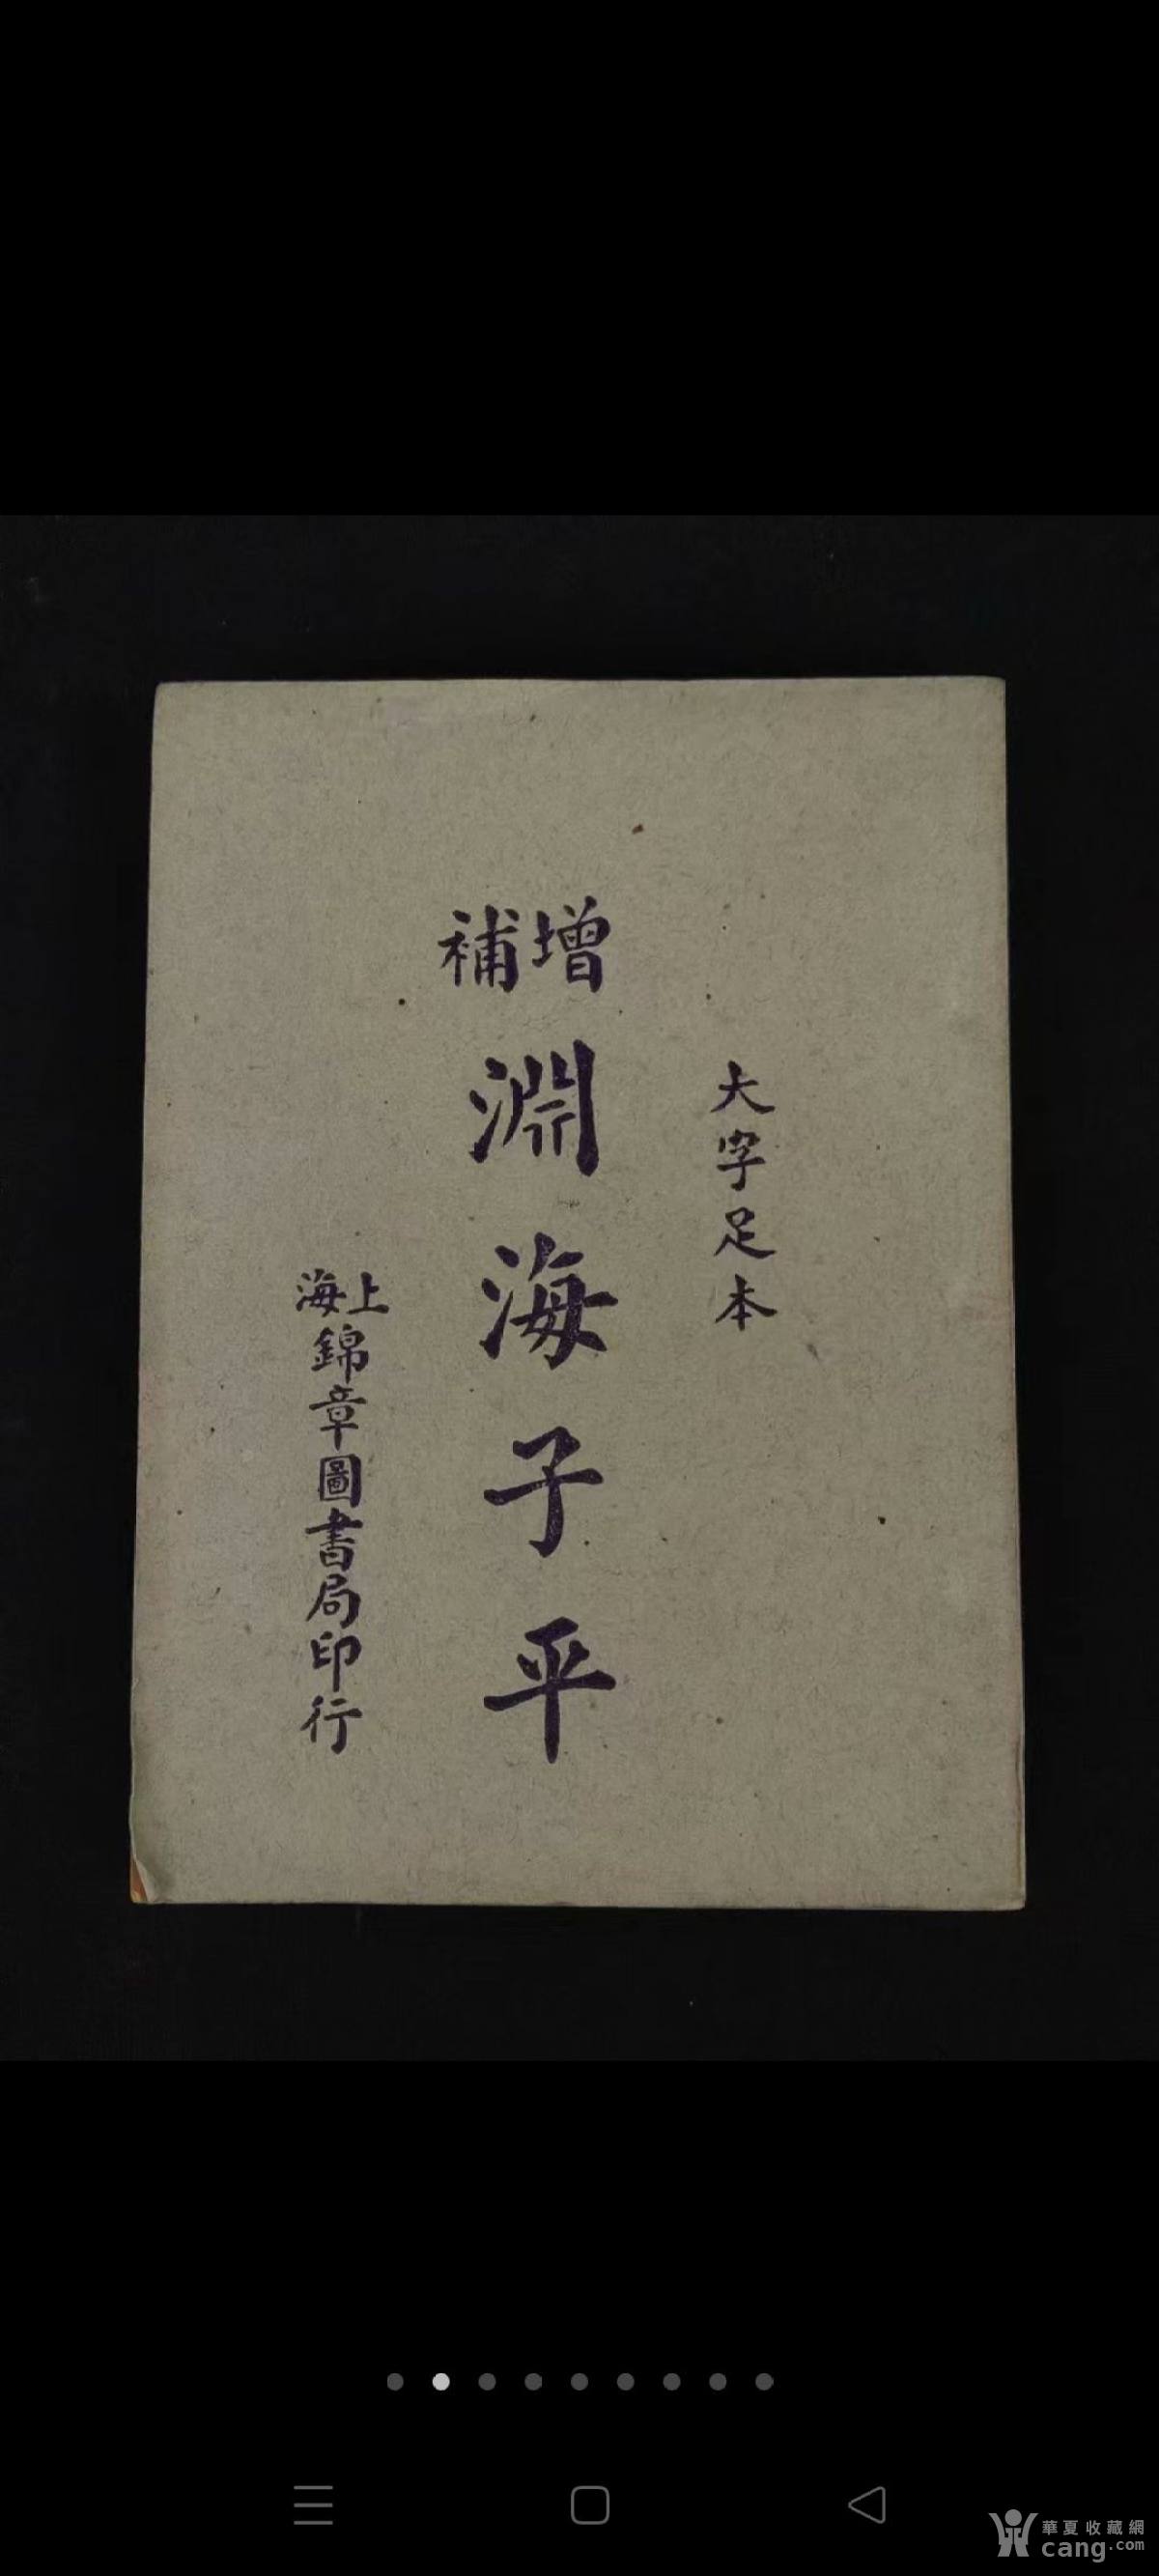 大字足本
增補
淵海子平
上海
錦章圖書局印行
華夏收藏網
cang.com